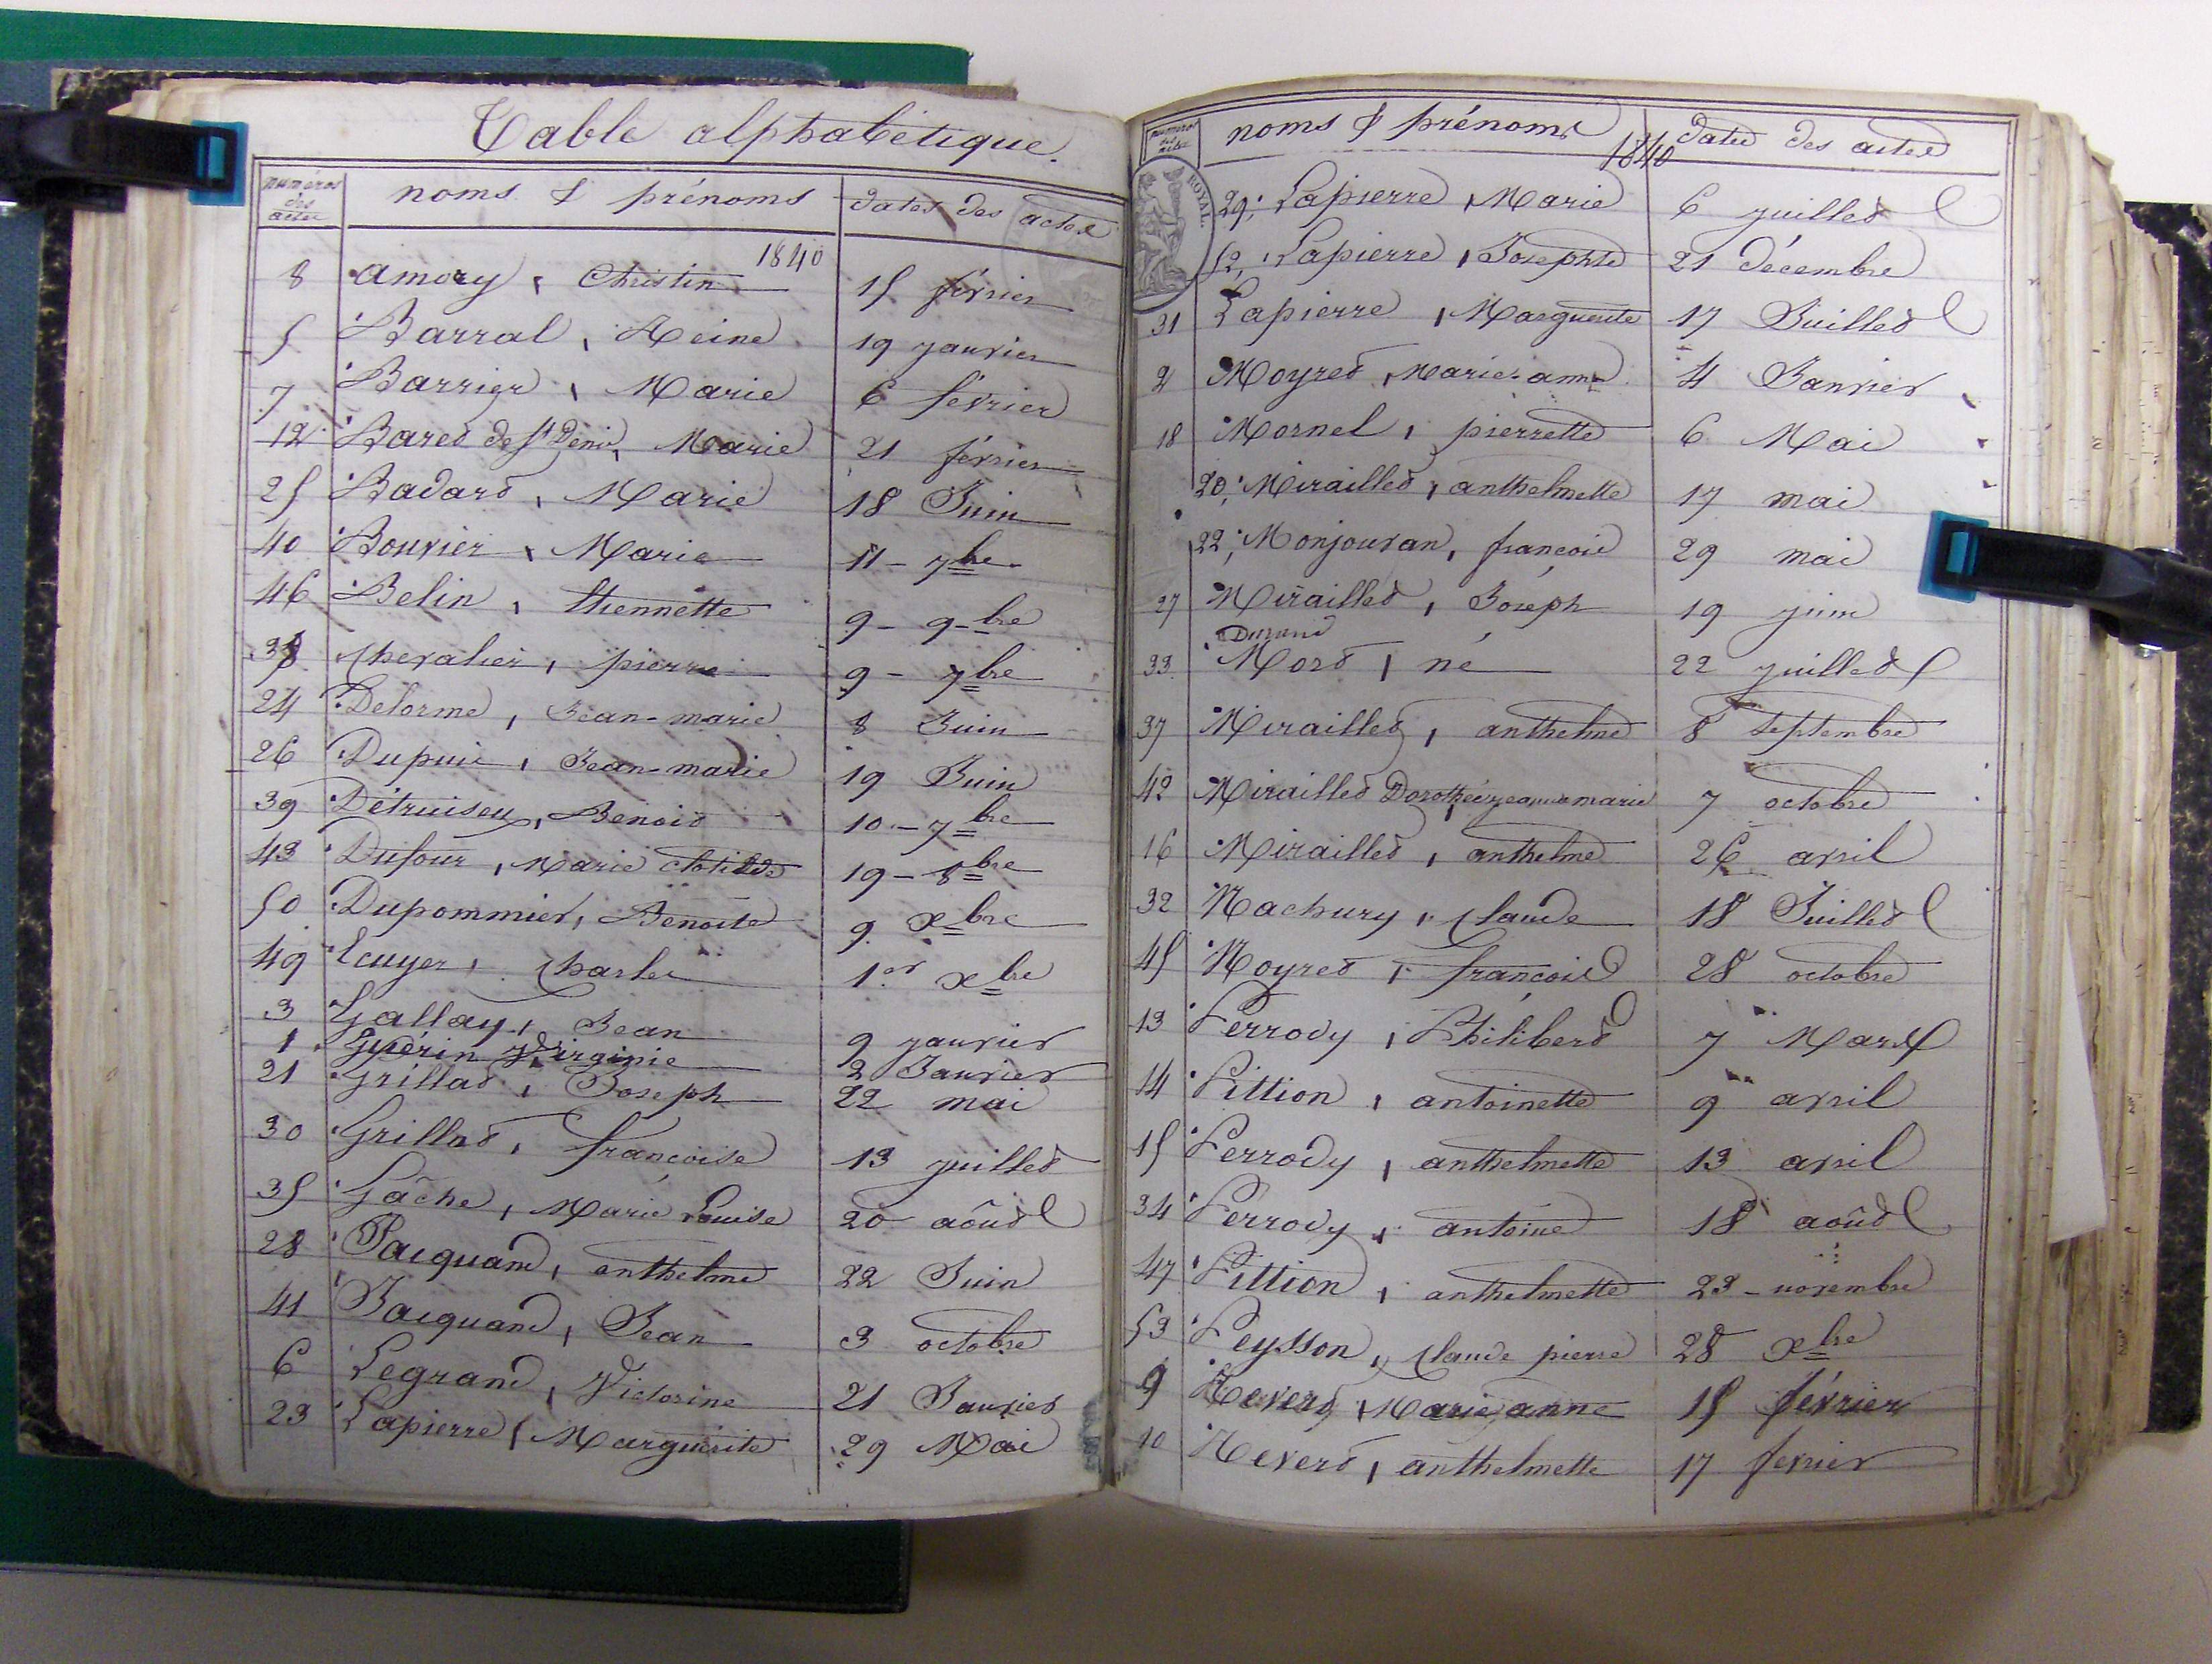 Table alphabétique.
numéros des actes noms & prénoms dates des actes
1840
8 amory, Christin 15 février
5 Barral, Reine 19 janvier
7 Barrier, Marie 6 février
12 Baret de St Denis, Marie 21 février
25 Badard, Marie 18 Juin
40 Bouvier, Marie 11 - 7bre
46 Belin, thiennette 9 - 9-bre
38 Chevalier, pierre 9 - 7bre
24 Delorme, Jean-marie 8 Juin
26 Dupuis, Jean-marie 19 Juin
39 Détruiseux, Benoit 10 - 7bre
43 Dufour, Marie Clotilde 19 - 8bre
50 Dupommier, Benoite 9 xbre
49 Ecuyer, Charles 1er xbre
3 Gallay, Jean 9 janvier
1 Guerin, Virginie 2 Janvier
21 Grillat, Joseph 22 mai
30 Grillat, françoise 13 juillet
35 Gâche, Marie Louise 20 août
28 Jacquand, anthelme 22 Juin
41 Jacquand, Jean 3 octobre
6 Legrand, Victorine 21 Janvier
23 Lapierre, Marguerite 29 Mai
numéros des actes noms & prénoms dates des actes
1840
ROYAL
29 Lapierre, Marie 6 juillet
52 Lapierre, Josephte 21 décembre
31 Lapierre, Marguerite 17 Juillet
2 Moyret, Marie-anne 4 Janvier
18 Mornel, pierrette 6 Mai
20 Miraillet, anthelmette 17 mai
22 Monjouvan, françois 29 mai
27 Miraillet, Joseph 19 juin
Durand
33 Mort, né 22 juillet
37 Miraillet, anthelme 8 septembre
42 Miraillet Dorothée, jeanne marie 7 octobre
16 Miraillet, anthelme 26 avril
32 Machury, Claude 18 Juillet
45 Moyret, françois 28 octobre
13 Perrody, Philibert 7 Mars
14 Pittion, antoinette 9 avril
15 Perrody, anthelmette 13 avril
34 Perrody, antoine 18 août
47 Pittion, anthelmette 23 - novembre
53 Peysson, Claude pierre 28 xbre
9 Revert, Marie anne 15 février
10 Revert, anthelmette 17 fevrier